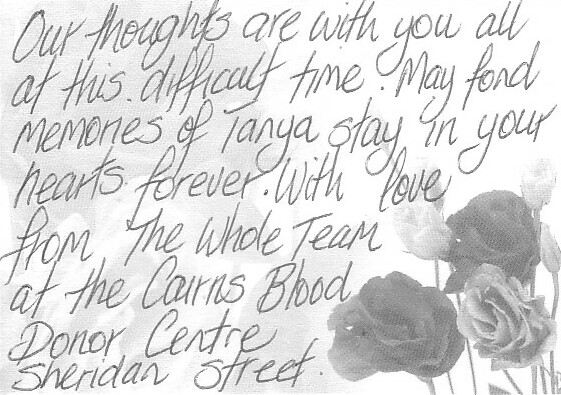 Our thoughts are with you all
at this difficult time. May fond
memories of Tanya stay in your
hearts forever. With love
from The Whole Team
at the Cairns Blood
Donor Centre
Sheridan Street.